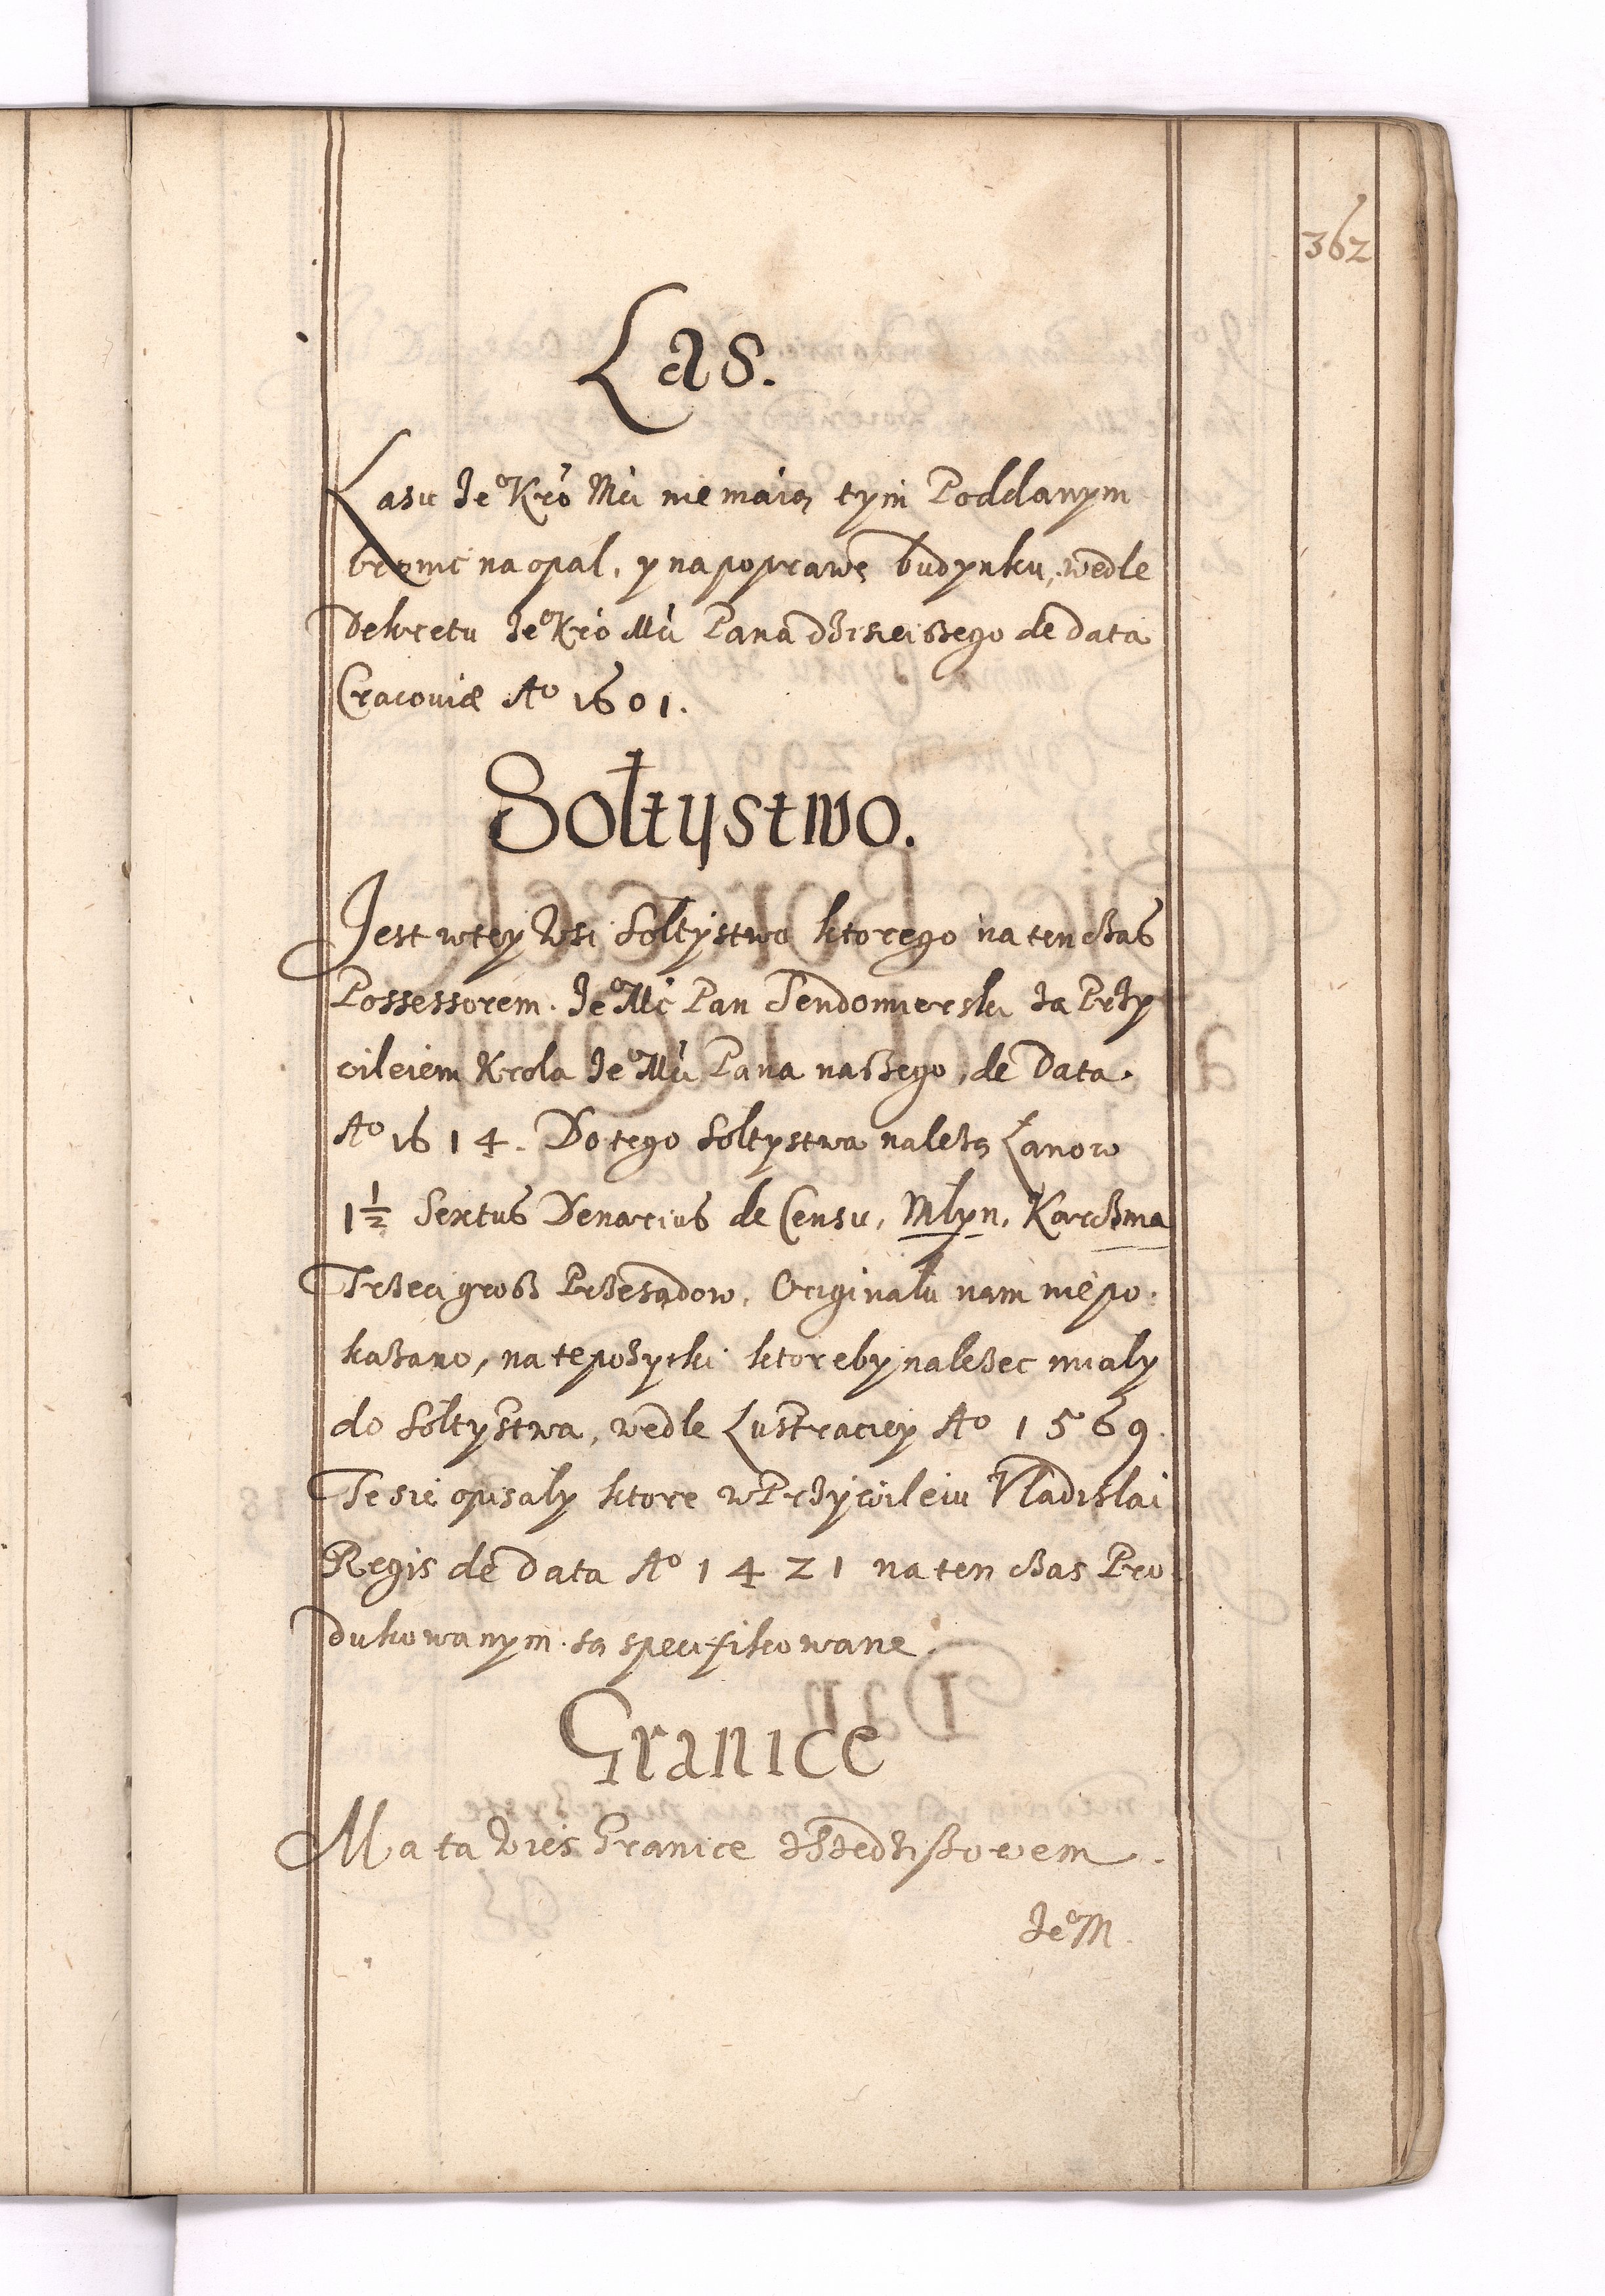 362
Las.
Lasu Je° Kró Mći nie maią tym Poddanym
bronic na opał, y na poprawę budynku, wedle
Dekretu Je° Kró Mći Pana dzisieiszego de data
Cracoviæ A° 1601.
Sołtystwo.
Jest w tey Wsi Sołtystwo ktorego na ten czas
Possessorem Je° Mć Pan Sendomierski za Przy
vileiem Krola Je° Mći Pana naszego, de Data
A° 1614. Do tego Sołtystwa należą Łanow
1½ Sextus Denarius de Censu, Młyn, Karczma
Trzeci grosz Przesądow, Originału nam niepo
kazano, na te pożytki ktoreby należec miały
do Sołtystwa, wedle Lustraciey A° 1569.
Te sie opisały ktore w Przywileiu Vladislai
Regis de Data A° 1421 na ten czas Pro
dukowanym są specifikowane.
Granice
Ma ta Wieś Granice z Dzedziſtwem
Je° M.